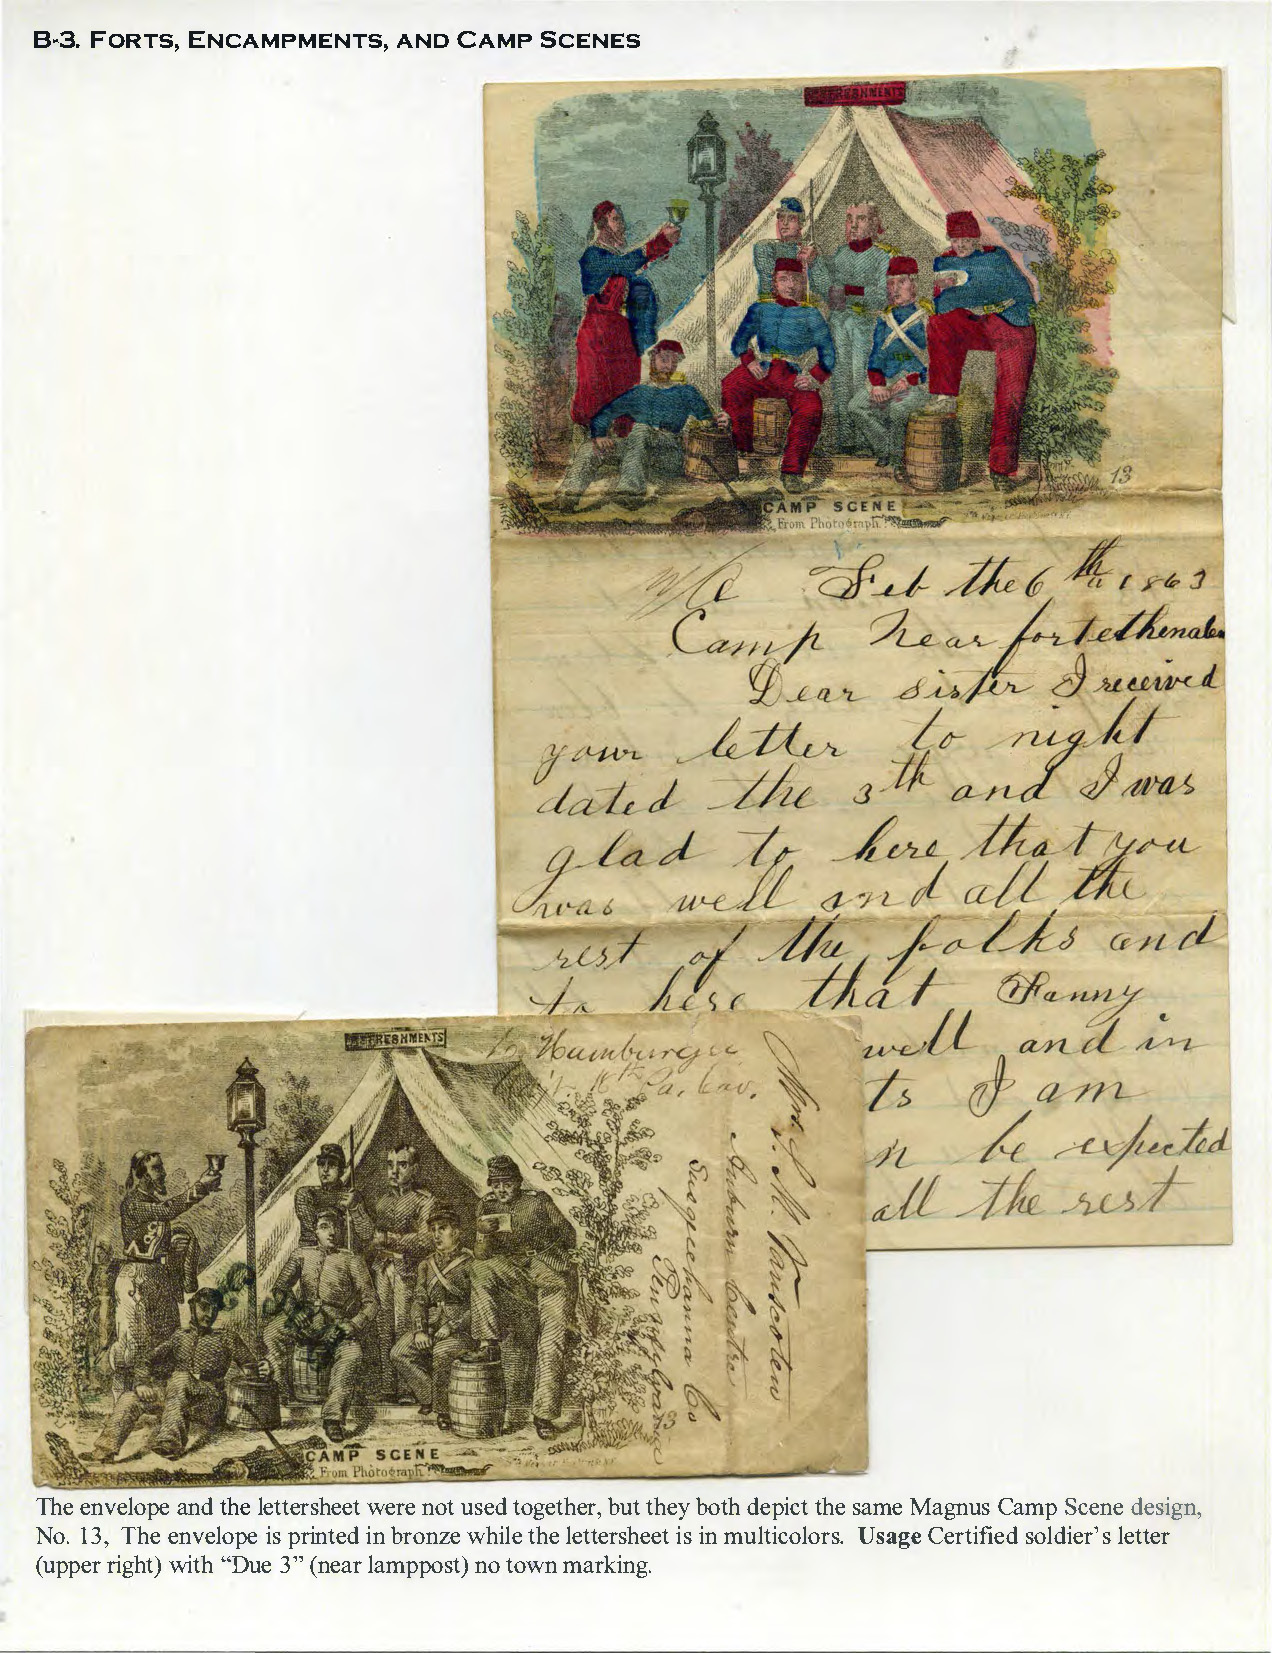 B-3. FORTS, ENCAMPMENTS, AND CAMP SCENES
REFRESHMENTS
13
CAMP SCENE
From Photograph
Feb the 6 th 1863
Camp Near fort ethenalen
Dear sister I received
your letter to night
dated the 3th and I was
glad to here that you
was well and all the
rest of the folks and
to here that Fanny
well and in
ts I am
n be expected
all the rest
REFRESHMENTS
Hamburger
16th Pa. Cav.
Mrs. L. M. Vanscoten
Auburn Centre
Susquehanna Co
Pensylvania
13
CAMP SCENE
From Photograph
The envelope and the lettersheet were not used together, but they both depict the same Magnus Camp Scene design,
No. 13, The envelope is printed in bronze while the lettersheet is in multicolors. Usage Certified soldier's letter
(upper right) with "Due 3" (near lamppost) no town marking.